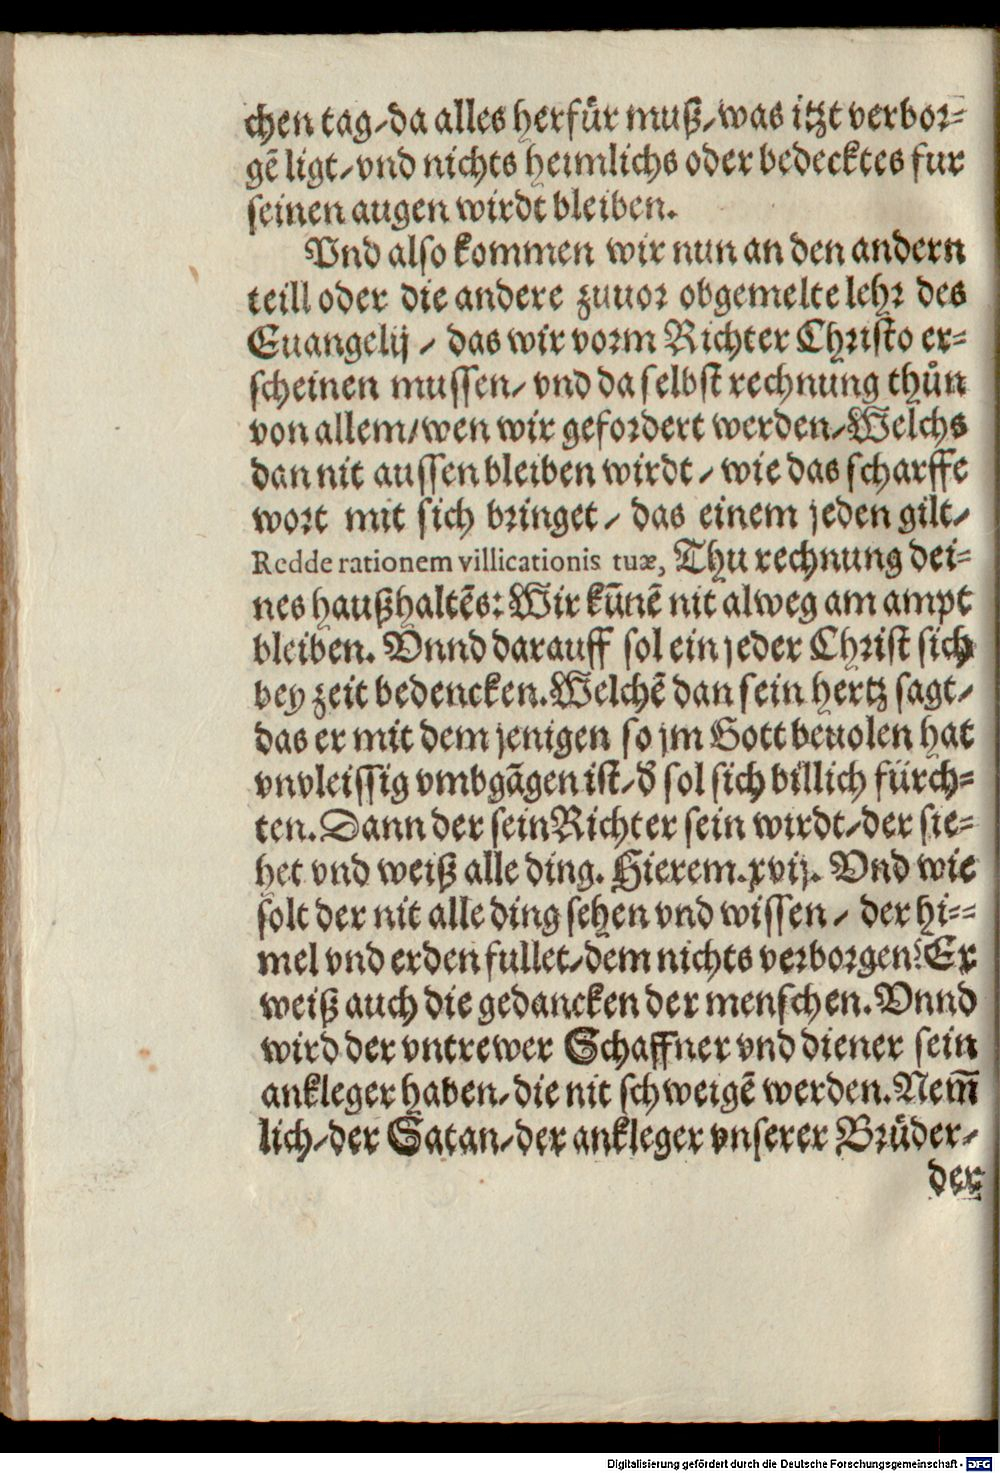 chen tag/da alles herfür muß/was itzt verbor-
gē ligt/vnd nichts heimlichs oder bedecktes fur
seinen augen wirdt bleiben.
Vnd also kommen wir nun an den andern
teill oder die andere zuuor obgemelte lehr des
Euangelij / das wir vorm Richter Christo er-
scheinen mussen/ vnd daselbst rechnung thůn
von allem/wen wir gefordert werden/Welchs
dan nit aussen bleiben wirdt / wie das scharffe
wort mit sich bringet / das einem jeden gilt/
Redde rationem villicationis tuæ, Thu rechnung dei-
nes haußhaltēs: Wir kūnē nit alweg am ampt
bleiben. Vnnd darauff sol ein jeder Christ sich
bey zeit bedencken. Welchē dan sein hertz sagt/
das er mit dem jenigen so jm Gott beuolen hat
vnvleissig vmbgāgen ist/d̄ sol sich billich fürch-
ten. Dann der sein Richter sein wirdt/der sie-
het vnd weiß alle ding. Hierem. xvij. Vnd wie
solt der nit alle ding sehen vnd wissen / der hi-
mel vnd erden fullet/dem nichts verborgen? Er
weiß auch die gedancken der menschen. Vnnd
wird der vntrewer Schaffner vnd diener sein
ankleger haben/die nit schweigē werden. Nem̄
lich/der Satan/der ankleger vnserer Brüder/
der
Digitalisierung gefördert durch die Deutsche Forschungsgemeinschaft - DFG